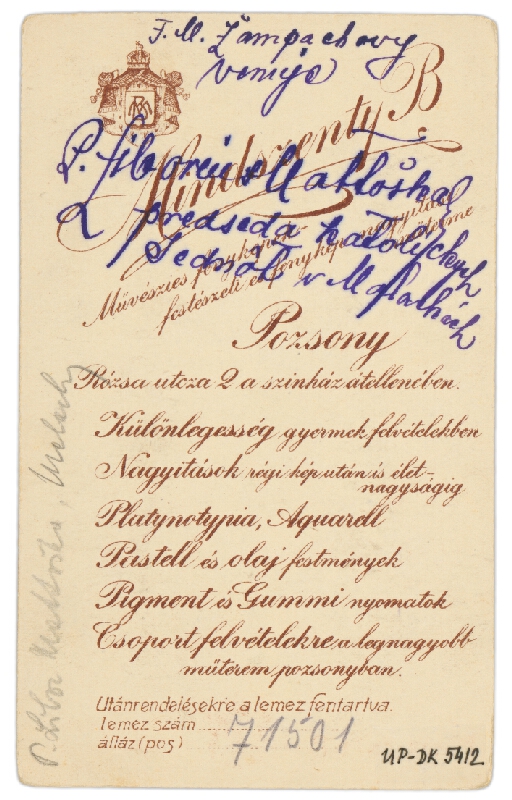 F. M. Žampachovy
venuje
Mindszenty B
P. Liborius Mattoška
predseda katolíckych
Jednôt v Malackách
Művészies fényképek nagyítások
festészeti és fénykép műterme
Pozsony
Rózsa utcza 2 a szinház átellenében.
Különlegesség gyermek felvételekben
Nagyítások régi kép után is élet-
nagyságig
Platynotypia, Aquarell
Pastell és olaj festmények
Pigment és Gummi nyomatok
Csoport felvételekre, a legnagyobb
műterem pozsonyban.
Utánrendelésekre a lemez fentartva.
lemez szám
állás (pos) 71501
UP-DK 5412
P. Libor Mattoška, Malacky